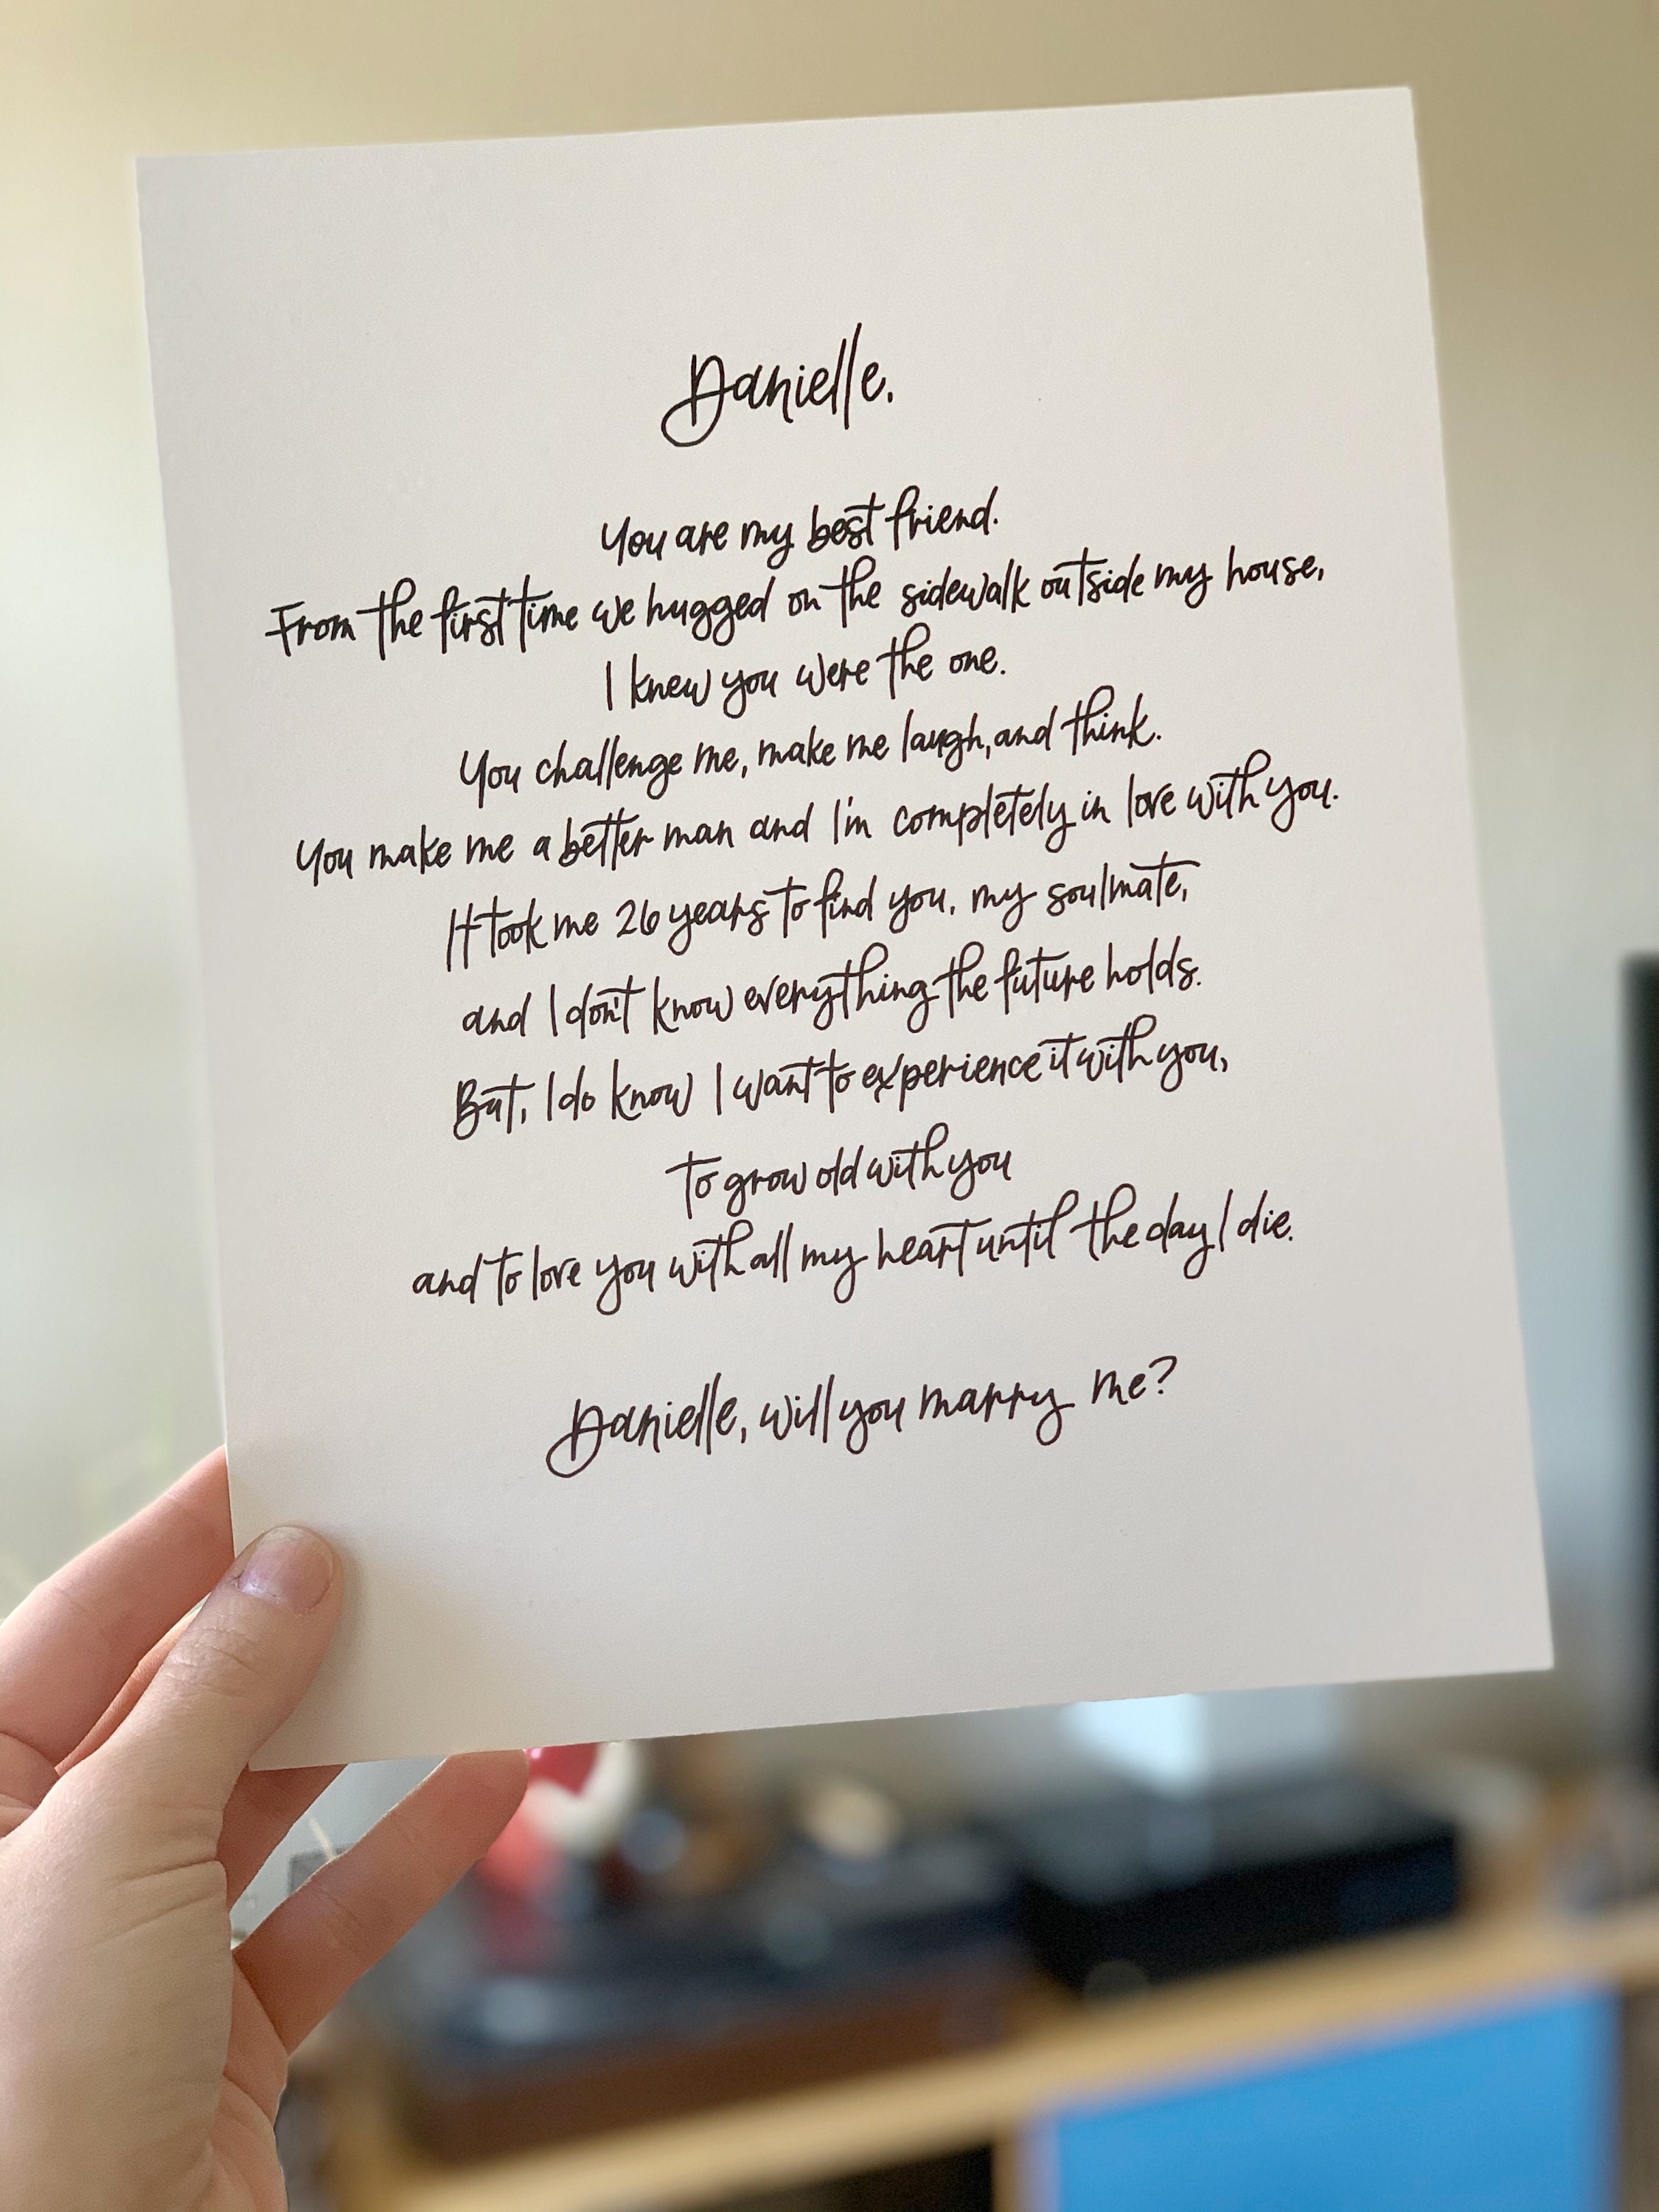 Danielle,
You are my best friend.
From the first time we hugged on the sidewalk outside my house,
I knew you were the one.
You challenge me, make me laugh, and think.
You make me a better man and I'm completely in love with you.
It took me 26 years to find you, my soulmate,
and I don't know everything the future holds.
But, I do know I want to experience it with you,
to grow old with you
and to love you with all my heart until the day I die.
Danielle, will you marry me?